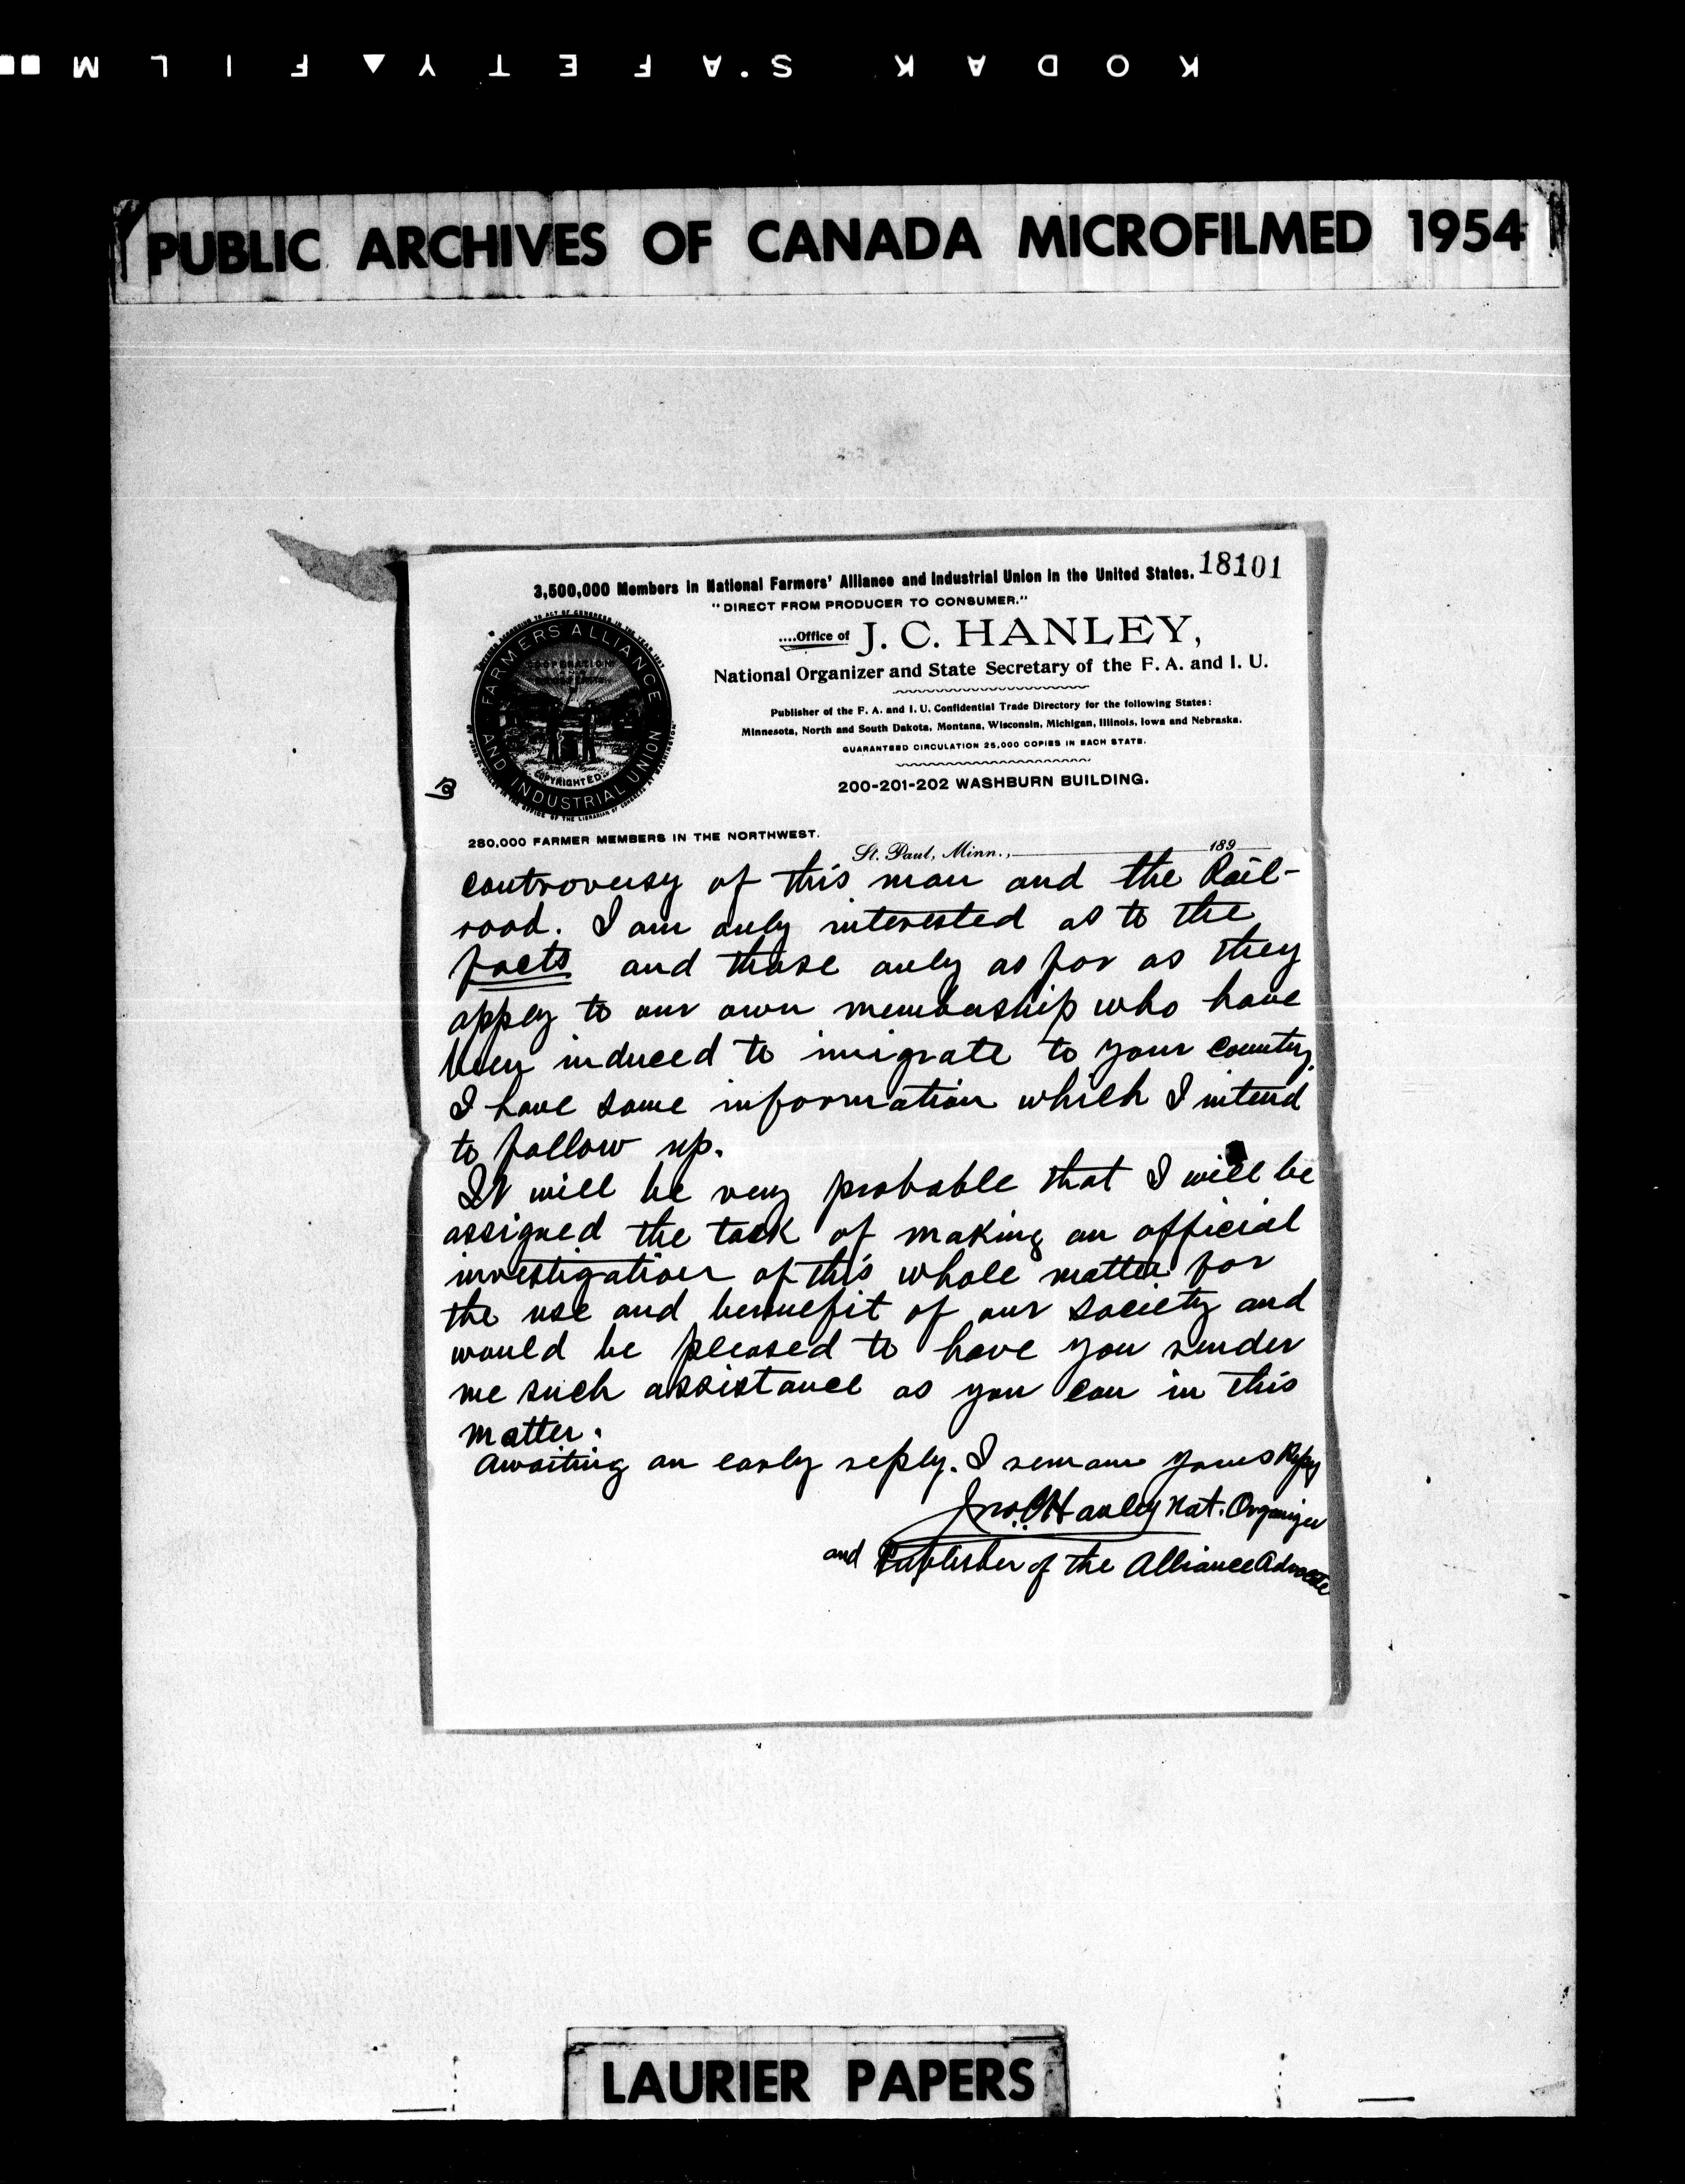 KODAK S.AFETY▲FILM
PUBLIC ARCHIVES OF CANADA MICROFILMED 1954
18101
3,500,000 Members in National Farmers' Alliance and Industrial Union in the United States.
"DIRECT FROM PRODUCER TO CONSUMER."
....Office of J. C. HANLEY,
National Organizer and State Secretary of the F. A. and I. U.
Publisher of the F. A. and I. U. Confidential Trade Directory for the following States:
Minnesota, North and South Dakota, Montana, Wisconsin, Michigan, Illinois, Iowa and Nebraska.
GUARANTEED CIRCULATION 25,000 COPIES IN EACH STATE.
200-201-202 WASHBURN BUILDING.
FARMERS ALLIANCE
AND INDUSTRIAL UNION
COOPERATION
COPYRIGHTED
280,000 FARMER MEMBERS IN THE NORTHWEST.
St. Paul, Minn., 189
controversy of this man and the Rail-
road. I am only interested as to the
facts and those only as far as they
apply to our own membership who have
been induced to imigrate to your country.
I have some information which I intend
to follow up.
It will be very probable that I will be
assigned the task of making an official
investigation of this whole matter for
the use and bennefit of our society and
would be pleased to have you render
me such assistance as you can in this
matter.
Awaiting an early reply. I remain yours Rspy
Jno. C. Hanley Nat. Organizer
and Publisher of the Alliance Advocate
LAURIER PAPERS